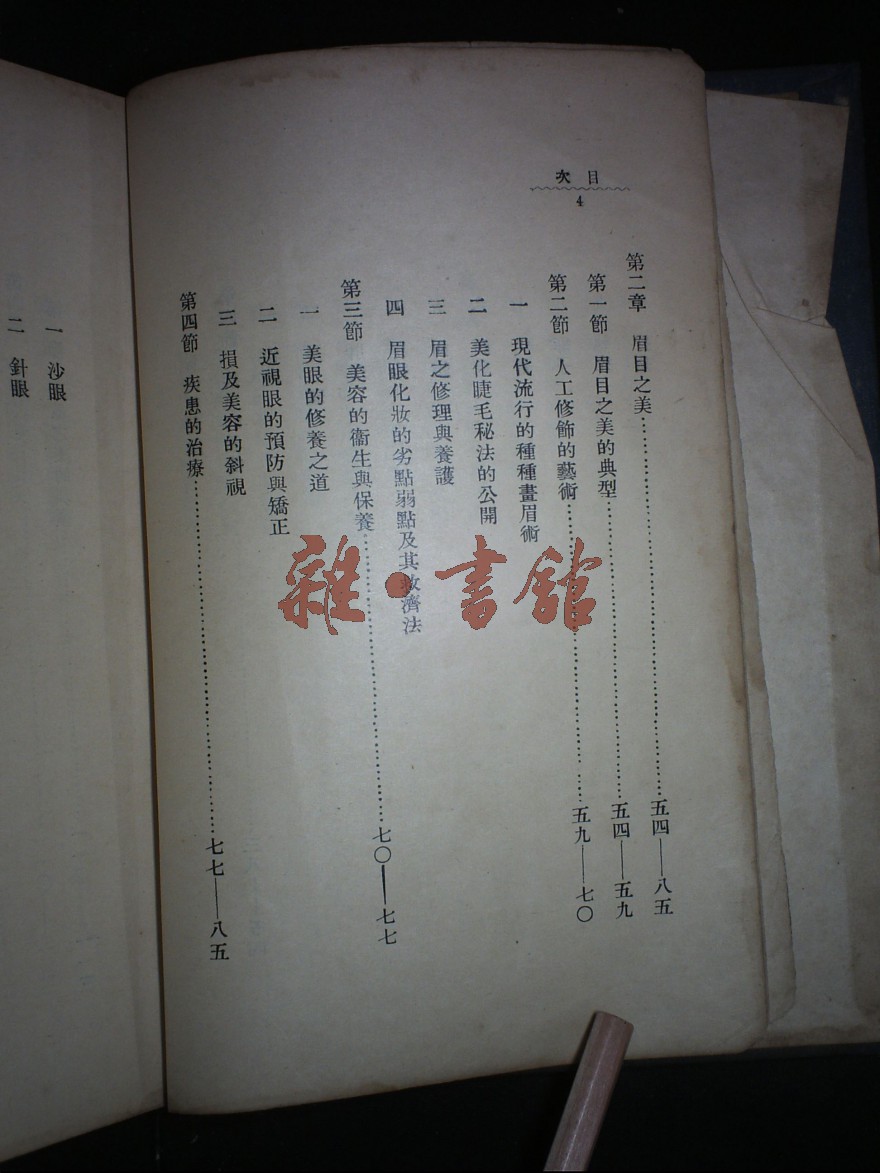 目次
4
第二章　眉目之美……………………五四——八五
第一節　眉目之美的典型……………………五四——五九
第二節　人工修飾的藝術……………………五九——七〇
一　現代流行的種種畫眉術
二　美化睫毛秘法的公開
三　眉之修理與養護
四　眉眼化妝的劣點弱點及其救濟法
第三節　美容的衞生與保養……………………七〇——七七
一　美眼的修養之道
二　近視眼的預防與矯正
三　損及美容的斜視
第四節　疾患的治療……………………七七——八五
一　沙眼
二　針眼
雜·書館